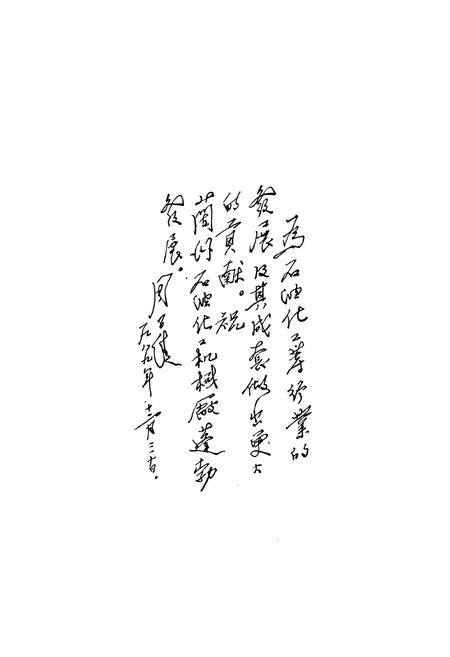 為石油化工等行業的
發展及其成套做出更大
的貢献。祝
蘭州石油化工机械厰蓬勃
發展。周
一九八九年十二月二十日。